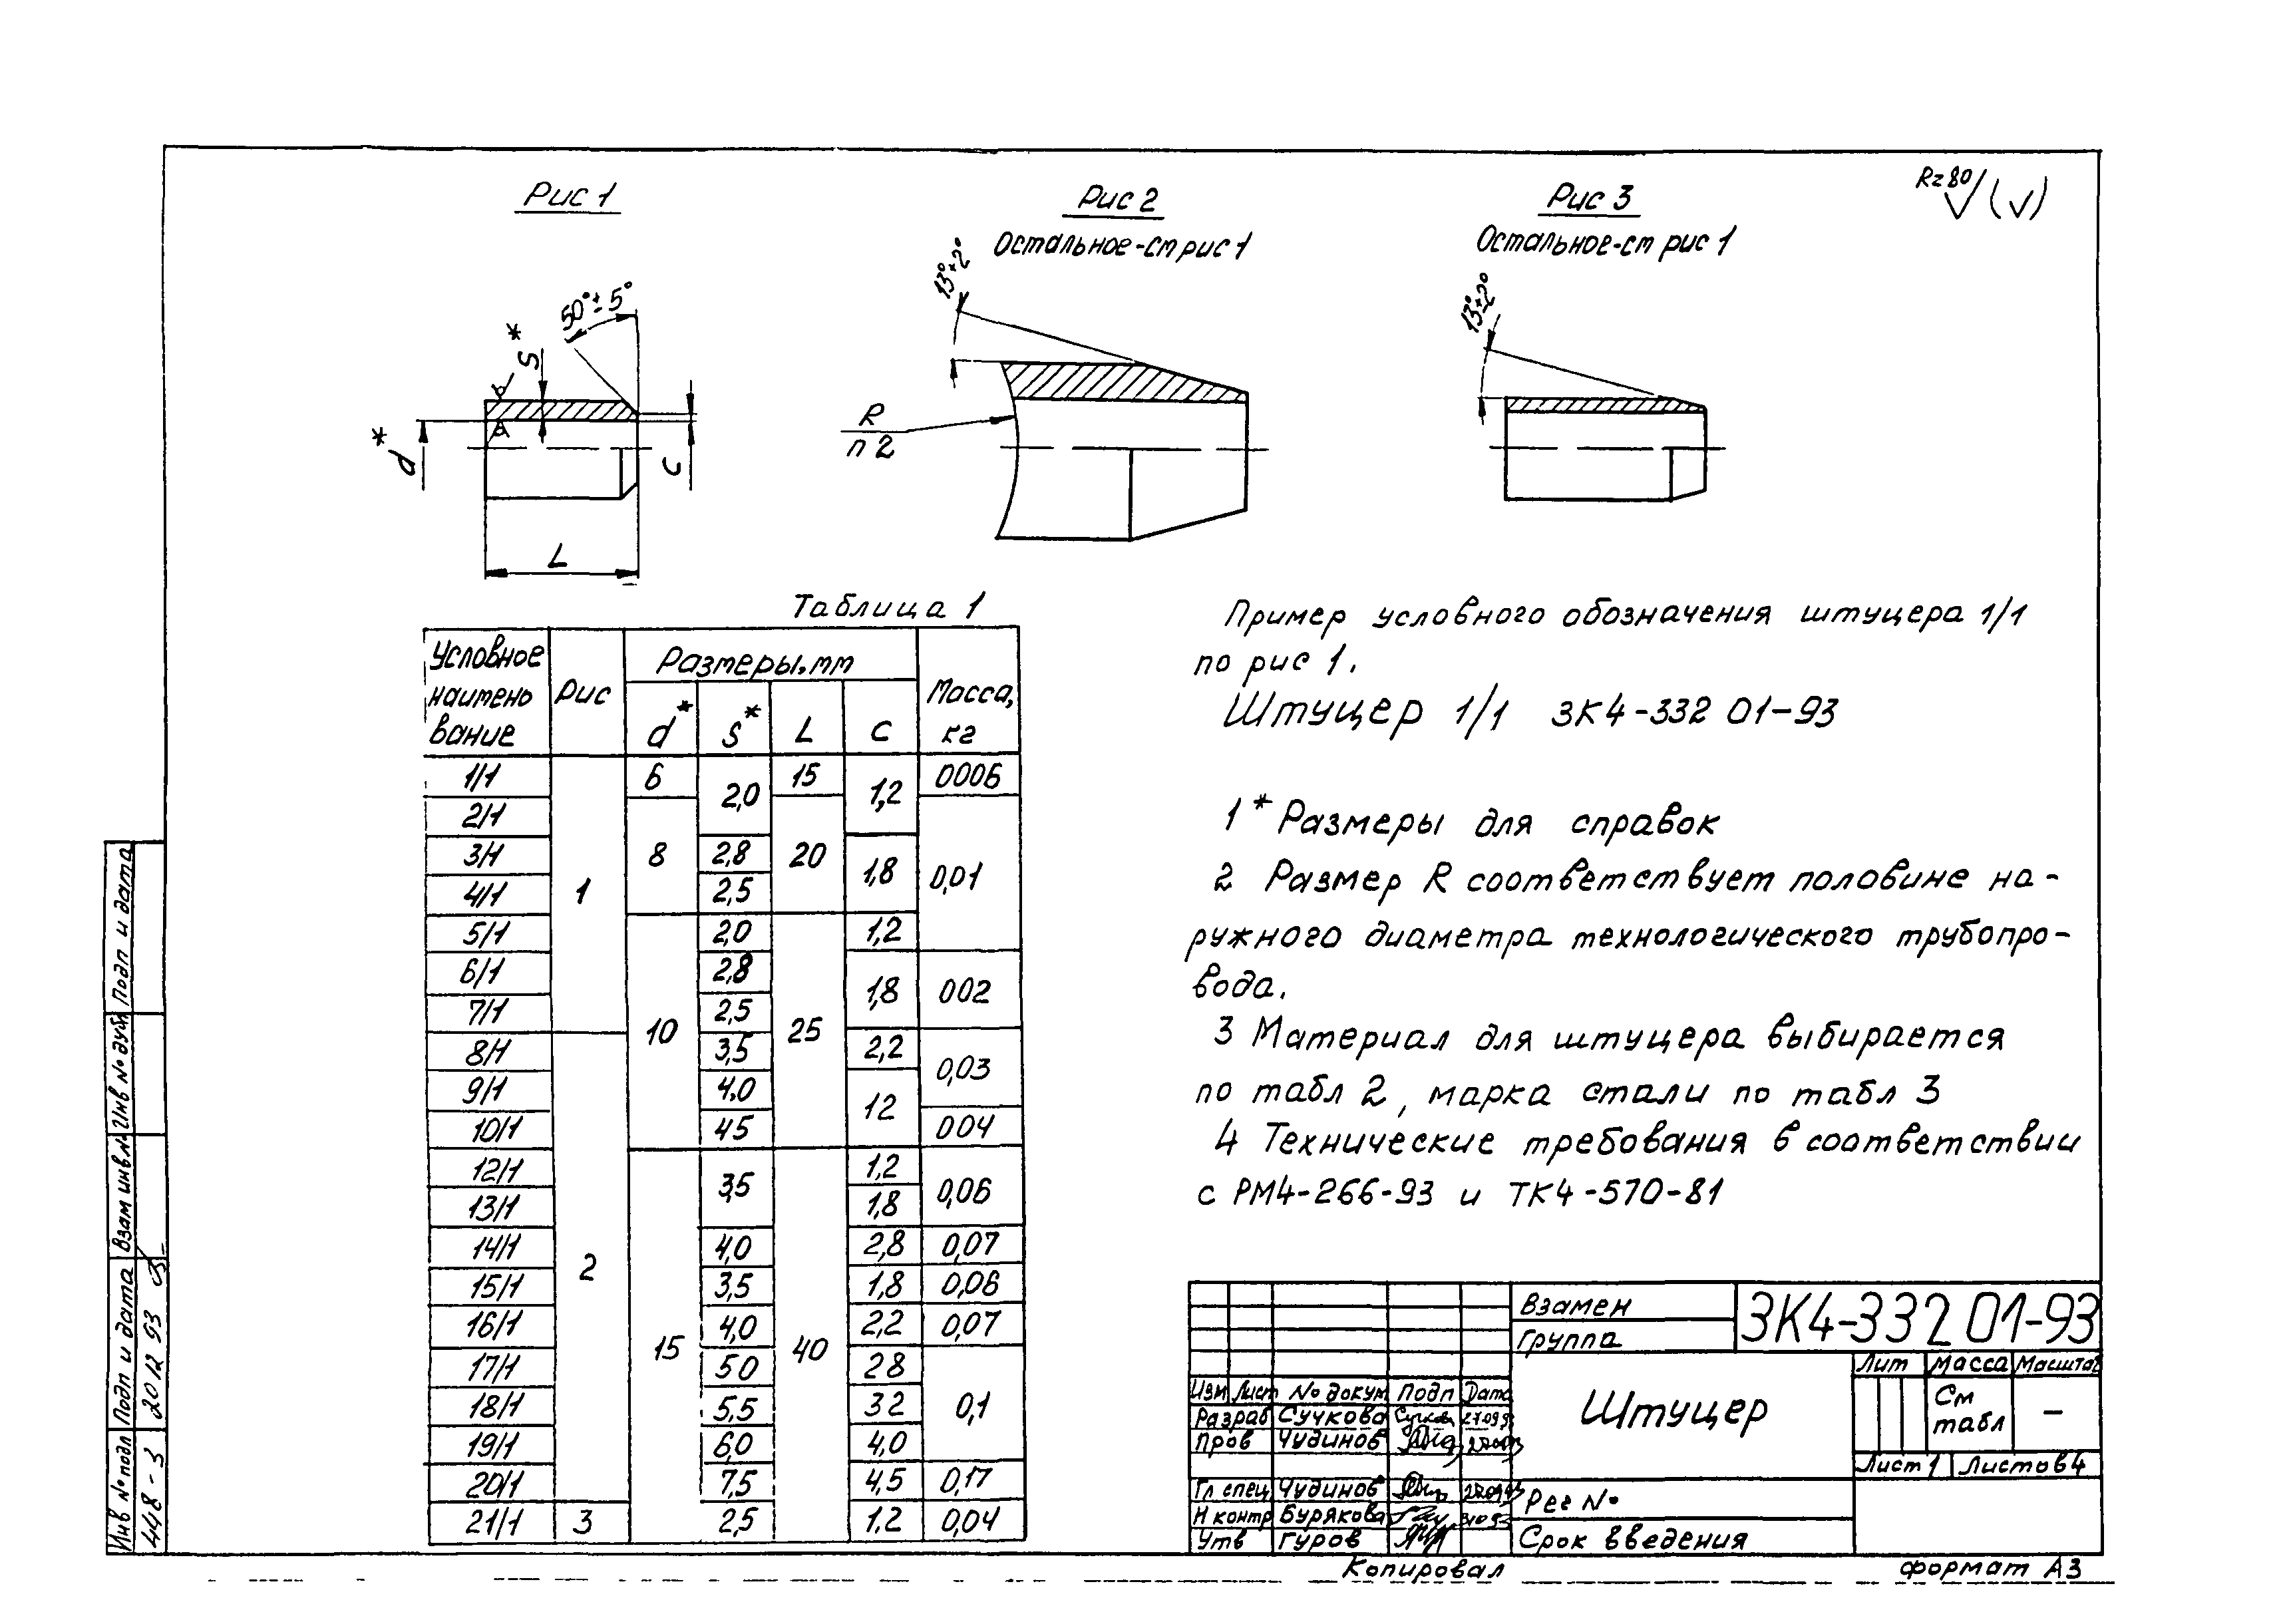 Рис 1
Рис 2
Остальное-см рис 1
Рис 3
Остальное-см рис 1
Rz80 (√)
50°±5°
S*
d*
c
L
13°±2°
R
п 2
13°±2°
Таблица 1
Условное наимено вание Рис Размеры, мм Масса, кг
d* S* L c
1/1 1 6 2,0 15 1,2 0006
2/1 8 20 0,01
3/1 2,8 1,8
4/1 2,5
5/1 10 2,0 25 1,2
6/1 2,8 1,8 002
7/1 2,5
8/1 2 3,5 2,2 0,03
9/1 4,0 12
10/1 45 004
12/1 15 3,5 40 1,2 0,06
13/1 1,8
14/1 4,0 2,8 0,07
15/1 3,5 1,8 0,06
16/1 4,0 2,2 0,07
17/1 50 28 0,1
18/1 5,5 32
19/1 6,0 4,0
20/1 7,5 4,5 0,17
21/1 3 2,5 1.2 0,04
Пример условного обозначения штуцера 1/1
по рис 1.
Штуцер 1/1 ЗК4-332 01-93
1 * Размеры для справок
2 Размер R соответствует половине на-
ружного диаметра технологического трубопро-
вода.
3 Материал для штуцера выбирается
по табл 2, марка стали по табл 3
4 Технические требования в соответствии
с РМ4-266-93 и ТК4-570-81
Взамен
Группа
ЗК4-332 01-93
Штуцер
Лит Масса Масштаб
См табл –
Лист 1 Листов 4
Изм Лист № докум Подп Дата
Разраб Сучкова
Пров Чудинов
Гл спец Чудинов
Н контр Бурякова
Утв Гуров
Рег №
Срок введения
Копировал
формат А3
Инв № подл Подп и дата Взам инв № Инв № дубл Подп и дата
448-3 20 12 93